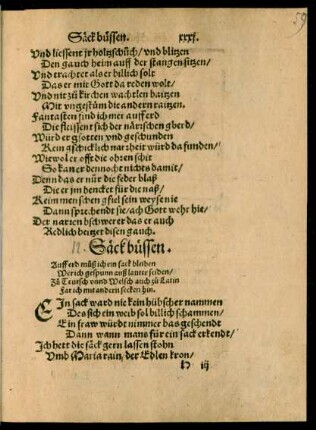 Säck büssen. xxxj.
59
Vnd liessent jr holtzschůch/ vnd blitzen
Den gauch heim auff der stangen sitzen/
Vnd trachtet als er billich solt
Das er mit Gott da reden wolt/
Vnd nit zů kirchen wachtlen baitzen
Mit vngestüm die andern raitzen.
Fantasten find ich mer auff erd
Die fleissent sich der närischen gberd/
Würd er gsotten vnd geschunden
Kein gschicklich narrheit würd da funden/
Wiewol er offt die ohren schit
So kan er dennocht nichts damit/
Denn das er nür die feder blaß
Die er jm hencket für die naß/
Keim menschen gfiel sein weyse nie
Dann sprechendt sie/ ach Gott wehr hie/
Der narren bschwerer das er auch
Redlich beitzet disen gauch.
12. Säck büssen.
Auff erd můß ich ein sack bleiben
Wer ich gespunn auß lauter seiden/
Zů Teutsch vnnd Welsch auch zů Latin
Far ich mit andern secken hin.
EIn sack ward nie kein hübscher nammen
Des sich ein weib sol billich schammen/
Ein fraw würdt nimmer bas geschendt
Dann wann mans für ein sack erkendt/
Ich hett die säck gern lassen stohn
Vmb Maria rain/ der Edlen kron/
H iij